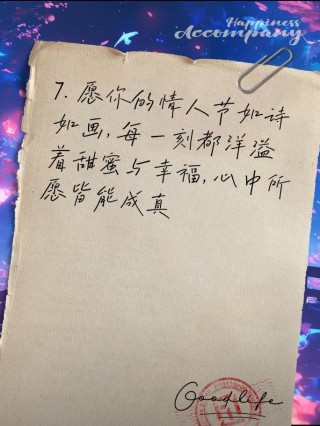 Happiness
Accompany
7. 愿你的情人节如诗
如画，每一刻都洋溢
着甜蜜与幸福，心中所
愿皆能成真
Goodlife